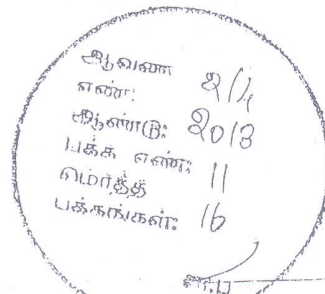 ஆவண
எண்: 2/1
ஆண்டு: 2013
பக்க எண்: 11
மொத்த
பக்கங்கள்: 16